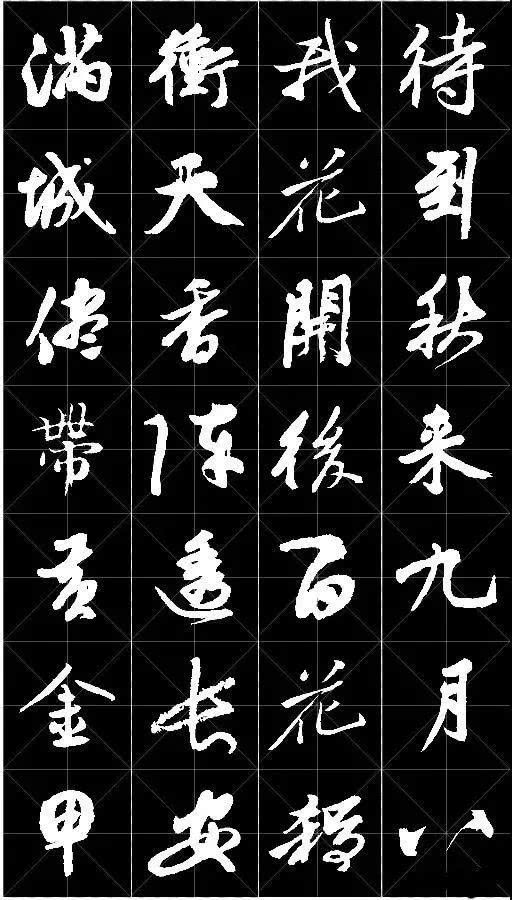 待到秋来九月八
我花開後百花殺
衝天香陣透長安
滿城儘帶黄金甲